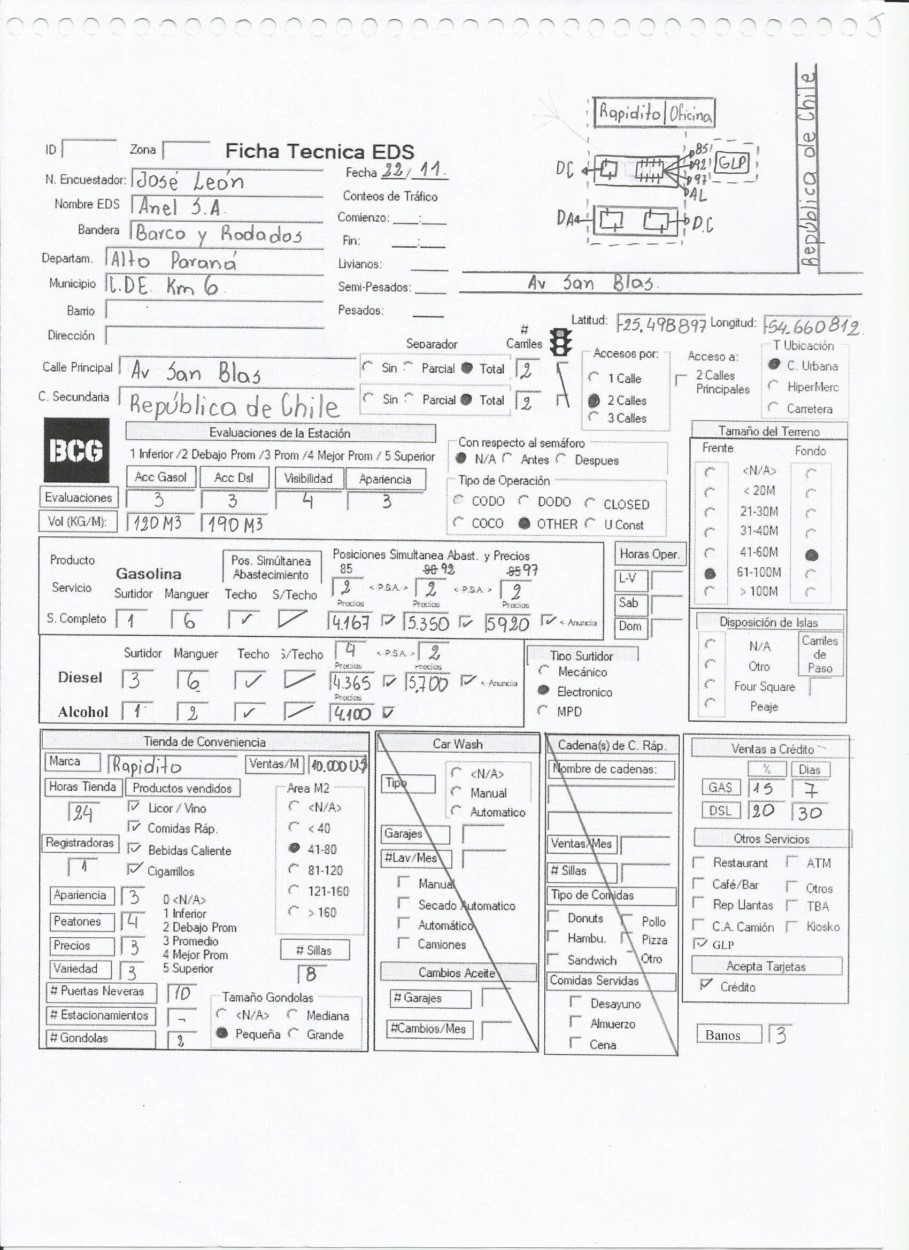 Rapidito Oficina
República de Chile
85
92
97
AL
GLP
DC
DA
D.C
Av San Blas.
ID
Zona
Ficha Tecnica EDS
N. Encuestador: José León
Fecha 22/11.
Nombre EDS Anel S.A.
Conteos de Tráfico
Bandera Barco y Rodados
Comienzo: __:__
Departam. Alto Paraná
Fin: __:__
Municipio C.DE. Km 6.
Livianos:
Semi-Pesados:
Barrio
Pesados:
Dirección
Latitud: -25.498897 Longitud: -54.660812
Calle Principal Av San Blas
C. Secundaria República de Chile
Separador
# Carriles
Sin Parcial Total 2
Sin Parcial Total 2
Accesos por:
1 Calle
2 Calles
3 Calles
Acceso a:
2 Calles Principales
T Ubicación
C. Urbana
HiperMerc
Carretera
BCG
Evaluaciones de la Estación
1 Inferior /2 Debajo Prom /3 Prom /4 Mejor Prom / 5 Superior
Acc Gasol Acc Dsl Visibilidad Apariencia
Evaluaciones 3 3 4 3
Vol (KG/M): 120 M3 190 M3
Con respecto al semáforo
N/A Antes Despues
Tipo de Operación
CODO DODO CLOSED
COCO OTHER U Const
Tamaño del Terreno
Frente Fondo
<N/A>
< 20M
21-30M
31-40M
41-60M
61-100M
> 100M
Producto
Servicio
Gasolina
Pos. Simúltanea Abastecimiento
Posiciones Simultanea Abast. y Precios
85 90 92 95 97
Surtidor Manguer Techo S/Techo 2 < P.S.A. > 2 < P.S.A. > 2
Precios Precios Precios
S. Completo 1 6 4.167 5.350 5920 <-Anuncia
Horas Oper.
L-V
Sab
Dom
Surtidor Manguer Techo S/Techo 4 < P.S.A. > 2
Precios Precios
Diesel 3 6 4.365 5.700 <-Anuncia
Precios
Alcohol 1 2 4.100
Tipo Surtidor
Mecánico
Electronico
MPD
Disposición de Islas
N/A
Otro
Four Square
Peaje
Carriles de Paso
Tienda de Conveniencia
Marca Rapidito Ventas/M 10.000 U$
Horas Tienda Productos vendidos
24
Licor / Vino
Comidas Ráp.
Registradoras
Bebidas Caliente
1
Cigarrillos
Area M2
<N/A>
< 40
41-80
81-120
121-160
> 160
Apariencia 3
Peatones 4
Precios 3
Variedad 3
0 <N/A>
1 Inferior
2 Debajo Prom
3 Promedio
4 Mejor Prom
5 Superior
# Sillas
8
# Puertas Neveras 10
# Estacionamientos -
# Gondolas 2
Tamaño Gondolas
<N/A> Mediana
Pequeña Grande
Car Wash
Tipo
<N/A>
Manual
Automatico
Garajes
#Lav/Mes
Manual
Secado Automatico
Automático
Camiones
Cambios Aceite
# Garajes
#Cambios/Mes
Cadena(s) de C. Ráp.
Nombre de cadenas:
Ventas/Mes
# Sillas
Tipo de Comidas
Donuts Pollo
Hambu. Pizza
Sandwich Otro
Comidas Servidas
Desayuno
Almuerzo
Cena
Ventas a Crédito
% Dias
GAS 15 7
DSL 20 30
Otros Servicios
Restaurant ATM
Café/Bar Otros
Rep Llantas TBA
C.A. Camión Kiosko
GLP
Acepta Tarjetas
Crédito
Banos 3